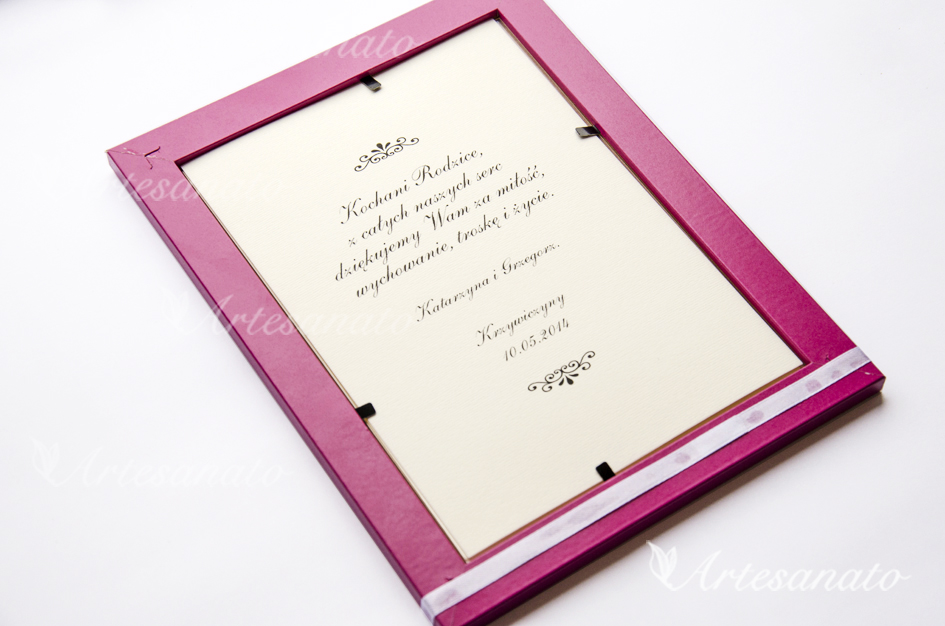 Kochani Rodzice,
z całych naszych serc
dziękujemy Wam za miłość,
wychowanie, troskę i życie.
Katarzyna i Grzegorz.
Krzywiczyny
10.05.2014
Artesanato
Artesanato
Artesanato
Artesanato